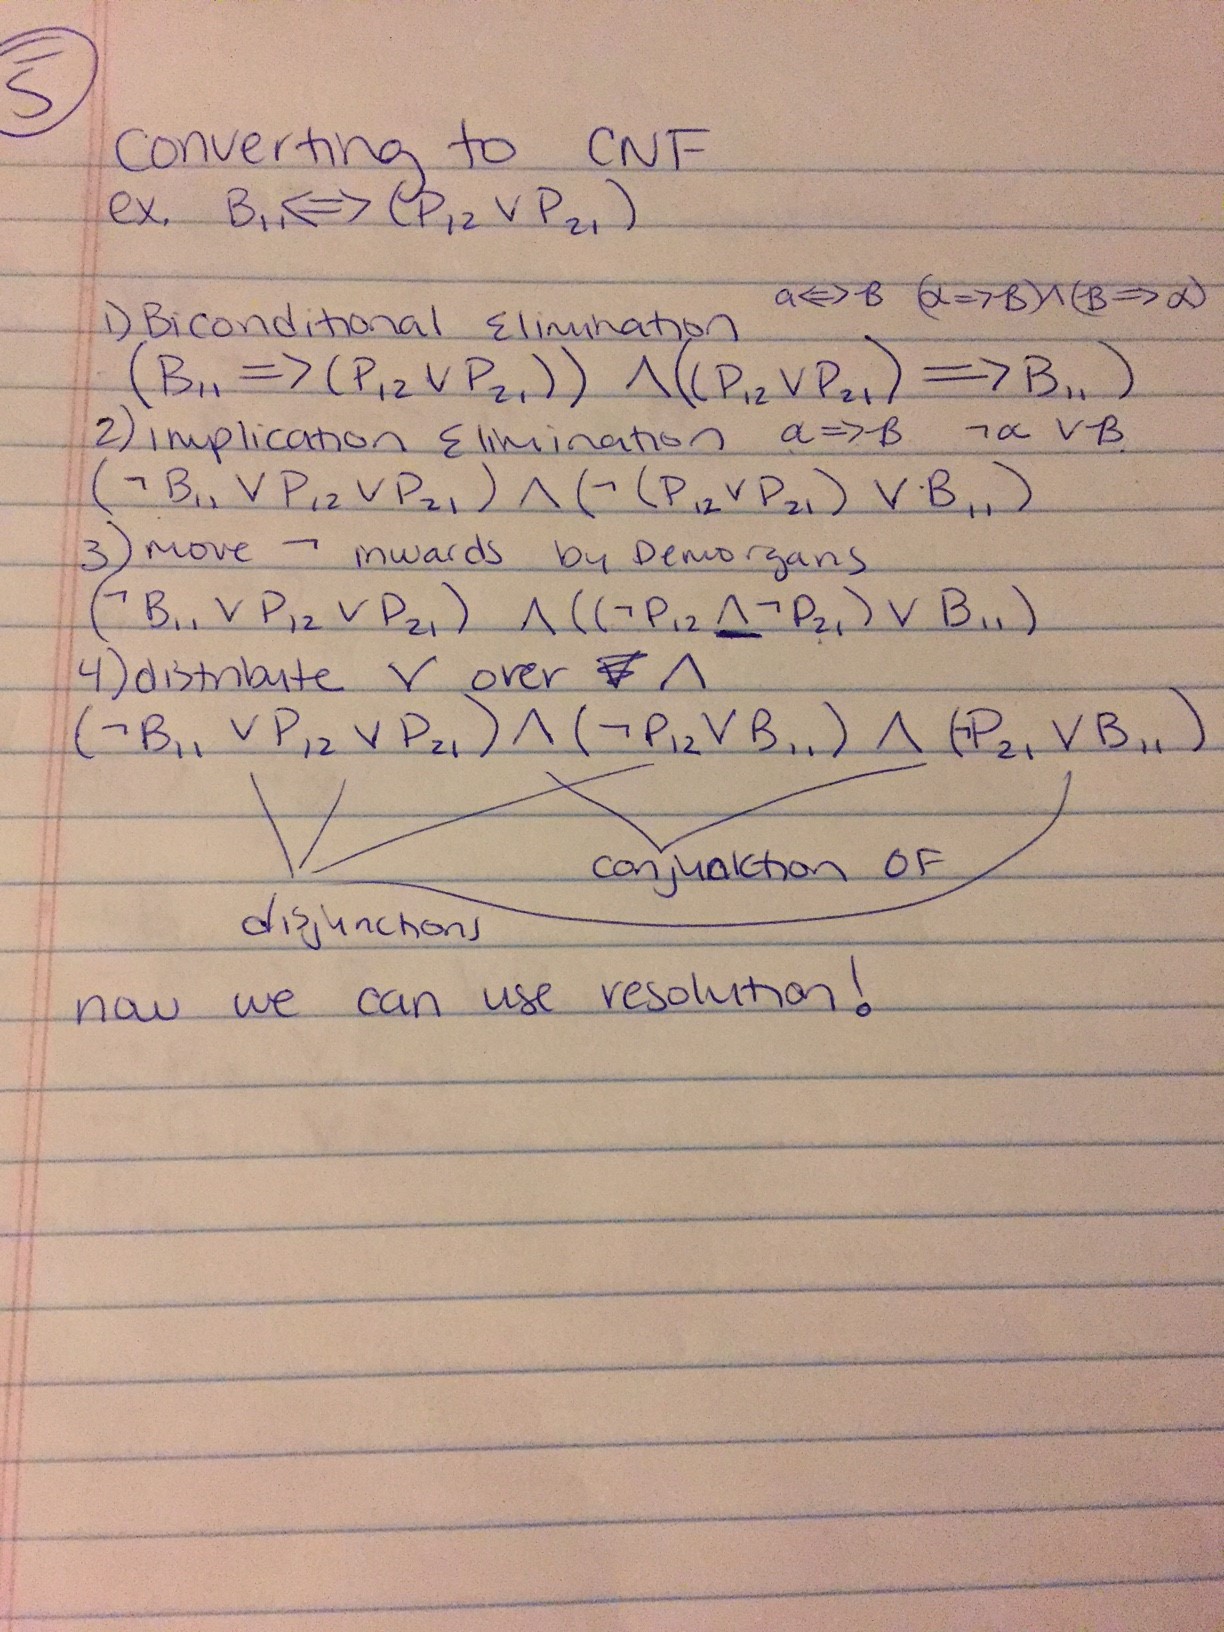 5
Converting to CNF
ex. B₁₁ <=> (P₁₂ ∨ P₂₁)
a<=>B (α=>B)∧(B=>α)
1) Biconditional Elimination
(B₁₁ => (P₁₂ ∨ P₂₁)) ∧ ((P₁₂ ∨ P₂₁) => B₁₁)
2) implication Elimination a=>B ¬α ∨ B
(¬B₁₁ ∨ P₁₂ ∨ P₂₁) ∧ (¬(P₁₂ ∨ P₂₁) ∨ B₁₁)
3) move ¬ inwards by Demorgans
(¬B₁₁ ∨ P₁₂ ∨ P₂₁) ∧ ((¬P₁₂ ∧ ¬P₂₁) ∨ B₁₁)
4) distribute ∨ over ∧
(¬B₁₁ ∨ P₁₂ ∨ P₂₁) ∧ (¬P₁₂ ∨ B₁₁) ∧ (¬P₂₁ ∨ B₁₁)
conjunction OF
disjunctions
now we can use resolution!